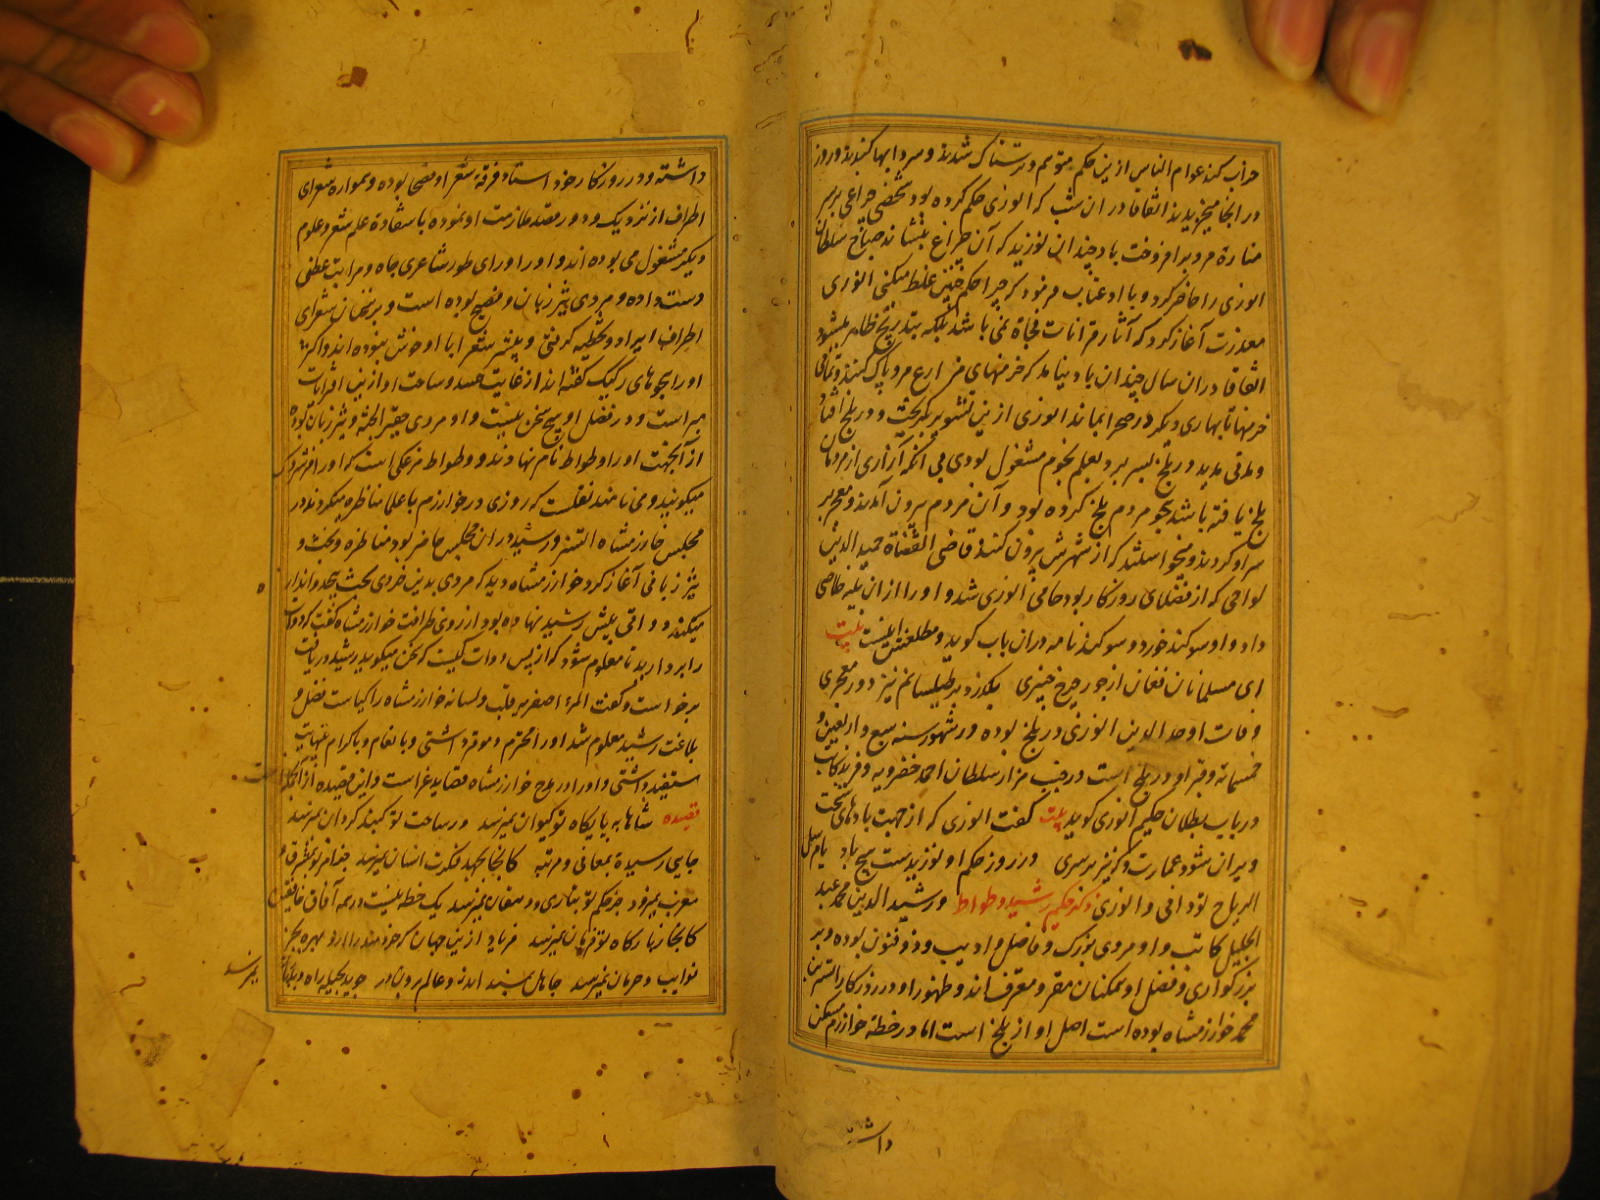 خراب کند عوام الناس ازین حکم متوهم و ترسناک شدند و سردابها کندند و روز
در انجا میخزیدند اتفاقا در ان شب که انوری حکم کرده بود شخصی چراغی بر سر
مناره مرو برافروخت باد چندان نوزید که آن چراغ بنشاند صباح سلطان
انوری را حاضر کرد و با او عتاب فرمود که چرا حکم چنین غلط میکنی انوری
معذرت آغاز کرد که آثار قرانات فجاة نمی باشد بلکه بتدریج ظاهر میشود
اتفاقا دران سال چندان باد نیامد که خرمنهای مزارع مرو پاک کنند و تمامی
خرمنها تا بهاری دیکر در صحرا بماند انوری ازین تشویر بکریخت و در بلخ افتاد
و مدتی مدید در بلخ بسر برد بعلم نجوم مشغول بودی بی آنکه آزاری از مردمان
بلخ یافته باشد هجو مردم بلخ کرده بود و آن مردم بیرون آمدند و معجر بر
سر او کردند و میخواستند که از شهرش بیرون کنند قاضی القضاة حمید الدین
لوالجی که از فضلای روزکار بود حامی انوری شد و او را از ان بلیه خلاصی
داد و او سوکند خورد و سوکند نامه دران باب کوید و مطلعش اینست بیت
ای مسلمانان فغان از جور چرخ چنبری
وفات اوحد الدین انوری در بلخ بوده در شهور سنه سبع و اربعین و
خمسمائه و قبر او در بلخ است در جنب مزار سلطان احمد خضرویه و فرید کاتب
در باب بطلان حکم انوری کوید بیت کفت انوری که از جهت بادهای سخت
ویران شود عمارت و کر نیز بر سری در روز حکم او نوزیدست هیچ باد یا مرسل
الریاح تو دانی و انوری ذکر حکیم رشید وطواط و رشید الدین محمد عبد
الجلیل کاتب و او مردی بزرک و فاضل و ادیب و ذو فنون بوده و بر
بزرکواری و فضل او همکنان مقر و معترف اند و ظهور او در روزکار اتسز بن
محمد خوارزمشاه بوده است اصل او از بلخ است اما در خطه خوارزم مسکن
داشته
داشته و در روزکار خود استاد فرقه شعرا و فصحا بوده و همواره شعرای
اطراف از نزدیک و دور مقصد ملازمت او نموده باستفاده علم شعر و علوم
دیکر مشغول می بوده اند و او را ورای طور شاعری جاه و مراتب عظمی
دست داده و مردی تیز زبان و فصیح بوده است و بر سخنان شعرای
اطراف ایراد و تخطیه کرفتی و بیشتر شعرا با او خوش نبوده اند و اکثر
او را هجوهای رکیک کفته اند از غایت حسد و ساحت او ازین افترائات
مبراست و در فضل او هیچ سخن نیست و او مردی حقیر الجثه و تیز زبان بوده
از آنجهت او را وطواط نام نهادند و وطواط مرغکی است که او را فرشتروک
میکویند و می نامند نقلست که روزی در خوارزم با علما مناظره میکردند در
مجلس خوارزمشاه اتسز و رشید در ان مجلس حاضر بود مناظره و بحث و
تیز زبانی آغاز کرد خوارزمشاه دید که مردی بدین خردی بحث بیحد و اندازه
میکند و دواتی پیش رشید نهاده بود از روی ظرافت خوارزمشاه کفت که دوات
را بردارید تا معلوم شود که از پس دوات کیست که سخن میکوید رشید دریافت
برخواست و کفت المرء اصغریه قلبه و لسانه خوارزمشاه را کیاست فضل و
بلاغت رشید معلوم شد او را محترم و موقر داشتی و بانعام و باکرام بنهایت
مستفید داشتی و او را در مدح خوارزمشاه قصاید غراست و این قصیده از آنجمله است
قصیده شاها به پایکاه تو کیوان نمیرسد در ساحت تو کنبد کردان نمیرسد
جایی رسیده بمعانی و مرتبه کانجا بجهد فکرت انسان نمیرسد
کانجا ز بارکاه تو فرمان نمیرسد فریاد ازین جهان که خردمند را ازو بهره بجز
نوایب و حرمان نمیرسد جاهل بمسند اندر و عالم برون در جوید بحیله راه و بدربان
نمیرسد